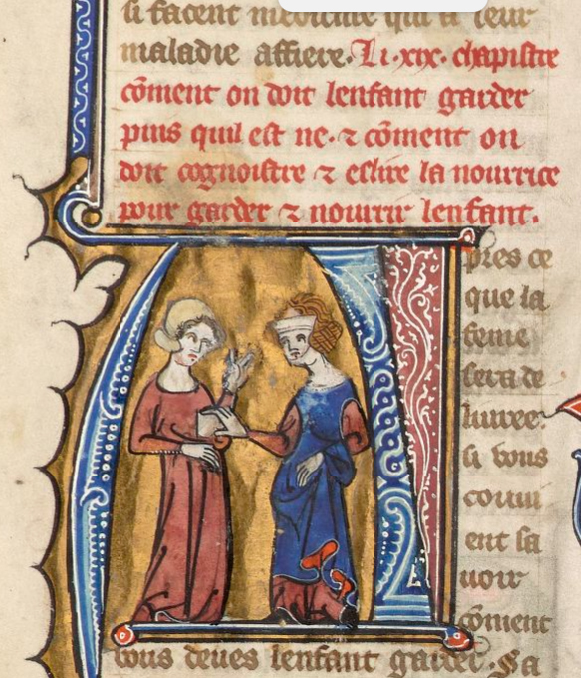 si facent medicine qui a leur
maladie affiere. Li .xix. chapistre
cõment on doit lenfant garder
puis quil est ne. ⁊ cõment on
doit cognoistre ⁊ eslire la nourrice
pour garder ⁊ nourrir lenfant.
Apres ce
que la
feme
sera de
liuree.
si vous
couui
ent sa
uoir
cõment
vous deues lenfant garder. Sa